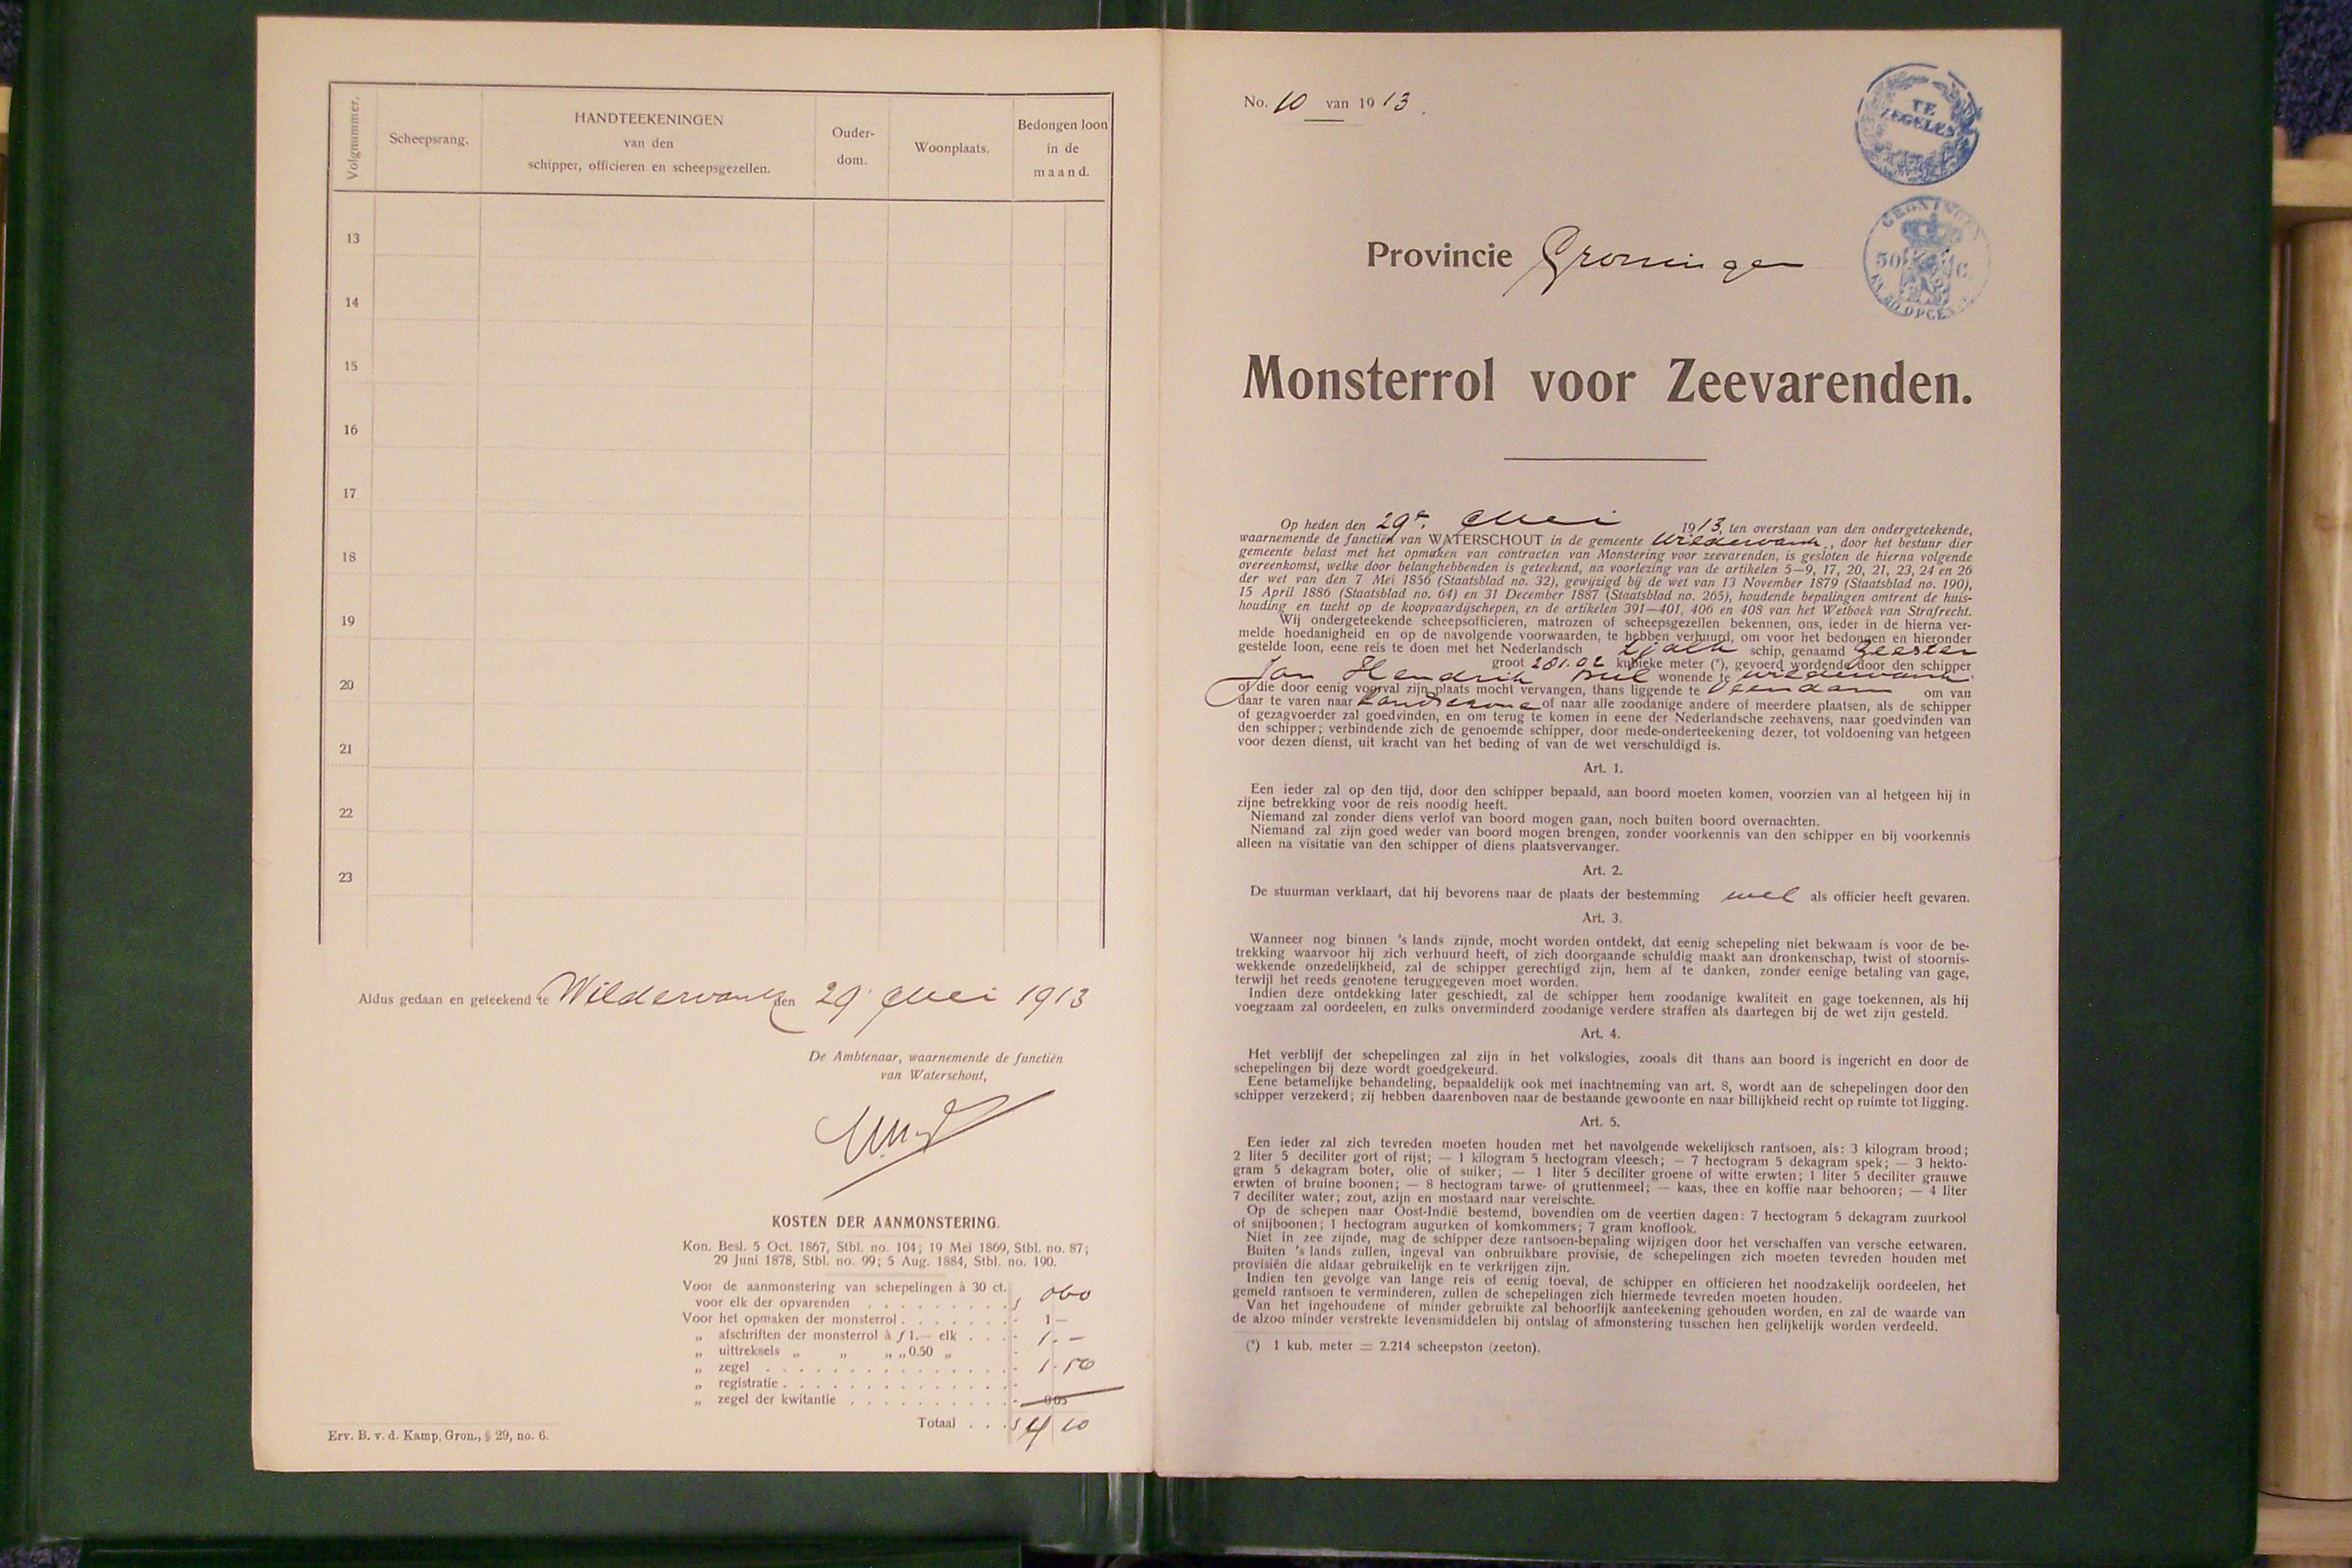 Volgnummer.
Scheepsrang.
HANDTEEKENINGEN
van den
schipper, officieren en scheepsgezellen.
Ouder-
dom.
Woonplaats.
Bedongen loon
in de
maand.
13
14
15
16
17
18
19
20
21
22
23
Aldus gedaan en geteekend te Wildervank den 29 Mei 1913
De Ambtenaar, waarnemende de functiën
van Waterschout,
KOSTEN DER AANMONSTERING.
Kon. Besl. 5 Oct. 1867, Stbl. no. 104; 19 Mei 1869, Stbl. no. 87;
29 Juni 1878, Stbl. no. 99; 5 Aug. 1884, Stbl. no. 190.
Voor de aanmonstering van schepelingen à 30 ct.
voor elk der opvarenden . . . . . . . . . f 060
Voor het opmaken der monsterrol . . . . . . . - 1 —
„ afschriften der monsterrol à f 1.— elk . . . . - 1. -
„ uittreksels „ „ „ „ 0.50 „ -
„ zegel . . . . . . . . . . . . . . . - 1.50
„ registratie . . . . . . . . . . . . . . -
„ zegel der kwitantie . . . . . . . . . . - 0 05
Totaal . . . f 4 10
Erv. B. v. d. Kamp, Gron., § 29, no. 6.
No. 10 van 1913.
TE
ZEGELEN
GRONINGEN
50 C.
OPCEN
Provincie Groningen
Monsterrol voor Zeevarenden.
Op heden den 29e Mei 1913, ten overstaan van den ondergeteekende,
waarnemende de functiën van WATERSCHOUT in de gemeente Wildervank, door het bestuur dier
gemeente belast met het opmaken van contracten van Monstering voor zeevarenden, is gesloten de hierna volgende
overeenkomst, welke door belanghebbenden is geteekend, na voorlezing van de artikelen 5—9, 17, 20, 21, 23, 24 en 26
der wet van den 7 Mei 1856 (Staatsblad no. 32), gewijzigd bij de wet van 13 November 1879 (Staatsblad no. 190),
15 April 1886 (Staatsblad no. 64) en 31 December 1887 (Staatsblad no. 265), houdende bepalingen omtrent de huis-
houding en tucht op de koopvaardijschepen, en de artikelen 391—401, 406 en 408 van het Wetboek van Strafrecht.
Wij ondergeteekende scheepsofficieren, matrozen of scheepsgezellen bekennen, ons, ieder in de hierna ver-
melde hoedanigheid en op de navolgende voorwaarden, te hebben verhuurd, om voor het bedongen en hieronder
gestelde loon, eene reis te doen met het Nederlandsch tjalk schip, genaamd Zeester
groot 281.92 kubieke meter (*), gevoerd wordende door den schipper
Jan Hendrik wonende te Wildervank
of die door eenig voorval zijn plaats mocht vervangen, thans liggende te Veendam om van
daar te varen naar Landscrona of naar alle zoodanige andere of meerdere plaatsen, als de schipper
of gezagvoerder zal goedvinden, en om terug te komen in eene der Nederlandsche zeehavens, naar goedvinden van
den schipper; verbindende zich de genoemde schipper, door mede-onderteekening dezer, tot voldoening van hetgeen
voor dezen dienst, uit kracht van het beding of van de wet verschuldigd is.
Art. 1.
Een ieder zal op den tijd, door den schipper bepaald, aan boord moeten komen, voorzien van al hetgeen hij in
zijne betrekking voor de reis noodig heeft.
Niemand zal zonder diens verlof van boord mogen gaan, noch buiten boord overnachten.
Niemand zal zijn goed weder van boord mogen brengen, zonder voorkennis van den schipper en bij voorkennis
alleen na visitatie van den schipper of diens plaatsvervanger.
Art. 2.
De stuurman verklaart, dat hij bevorens naar de plaats der bestemming wel als officier heeft gevaren.
Art. 3.
Wanneer nog binnen 's lands zijnde, mocht worden ontdekt, dat eenig schepeling niet bekwaam is voor de be-
trekking waarvoor hij zich verhuurd heeft, of zich doorgaande schuldig maakt aan dronkenschap, twist of stoornis-
wekkende onzedelijkheid, zal de schipper gerechtigd zijn, hem af te danken, zonder eenige betaling van gage,
terwijl het reeds genotene teruggegeven moet worden.
Indien deze ontdekking later geschiedt, zal de schipper hem zoodanige kwaliteit en gage toekennen, als hij
voegzaam zal oordeelen, en zulks onverminderd zoodanige verdere straffen als daartegen bij de wet zijn gesteld.
Art. 4.
Het verblijf der schepelingen zal zijn in het volkslogies, zooals dit thans aan boord is ingericht en door de
schepelingen bij deze wordt goedgekeurd.
Eene betamelijke behandeling, bepaaldelijk ook met inachtneming van art. 8, wordt aan de schepelingen door den
schipper verzekerd; zij hebben daarenboven naar de bestaande gewoonte en naar billijkheid recht op ruimte tot ligging.
Art. 5.
Een ieder zal zich tevreden moeten houden met het navolgende wekelijksch rantsoen, als: 3 kilogram brood;
2 liter 5 deciliter gort of rijst; — 1 kilogram 5 hectogram vleesch; — 7 hectogram 5 dekagram spek; — 3 hekto-
gram 5 dekagram boter, olie of suiker; — 1 liter 5 deciliter groene of witte erwten; 1 liter 5 deciliter grauwe
erwten of bruine boonen; — 8 hectogram tarwe- of gruttenmeel; — kaas, thee en koffie naar behooren; — 4 liter
7 deciliter water; zout, azijn en mostaard naar vereischte.
Op de schepen naar Oost-Indië bestemd, bovendien om de veertien dagen: 7 hectogram 5 dekagram zuurkool
of snijboonen; 1 hectogram augurken of komkommers; 7 gram knoflook.
Niet in zee zijnde, mag de schipper deze rantsoen-bepaling wijzigen door het verschaffen van versche eetwaren.
Buiten 's lands zullen, ingeval van onbruikbare provisie, de schepelingen zich moeten tevreden houden met
provisiën die aldaar gebruikelijk en te verkrijgen zijn.
Indien ten gevolge van lange reis of eenig toeval, de schipper en officieren het noodzakelijk oordeelen, het
gemeld rantsoen te verminderen, zullen de schepelingen zich hiermede tevreden moeten houden.
Van het ingehoudene of minder gebruikte zal behoorlijk aanteekening gehouden worden, en zal de waarde van
de alzoo minder verstrekte levensmiddelen bij ontslag of afmonstering tusschen hen gelijkelijk worden verdeeld.
(*) 1 kub. meter = 2.214 scheepston (zeeton).